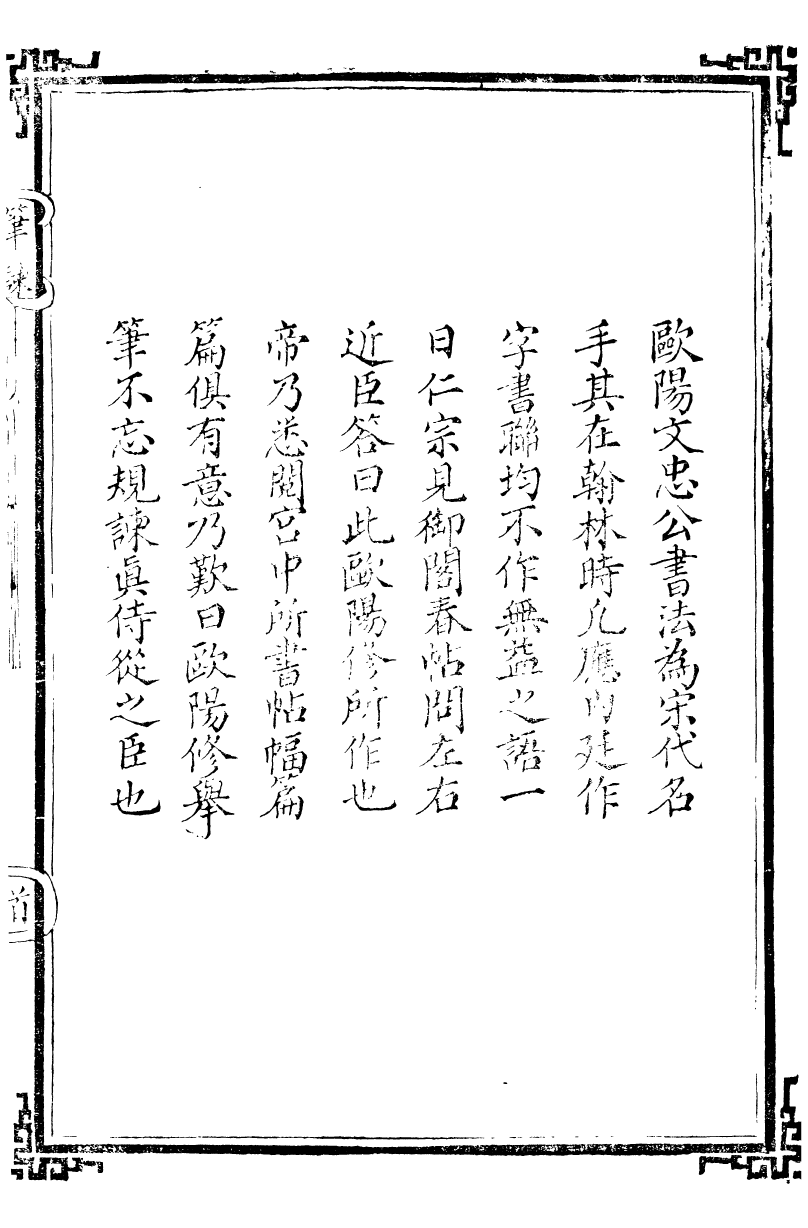 歐陽文忠公書法為宋代名
手其在翰林時凡應內廷作
字書聯均不作無益之語一
日仁宗見御閣春帖問左右
近臣答曰此歐陽修所作也
帝乃悉閱宮中所書帖幅篇
篇俱有意乃歎曰歐陽修舉
筆不忘規諫眞侍從之臣也
筆諫
首